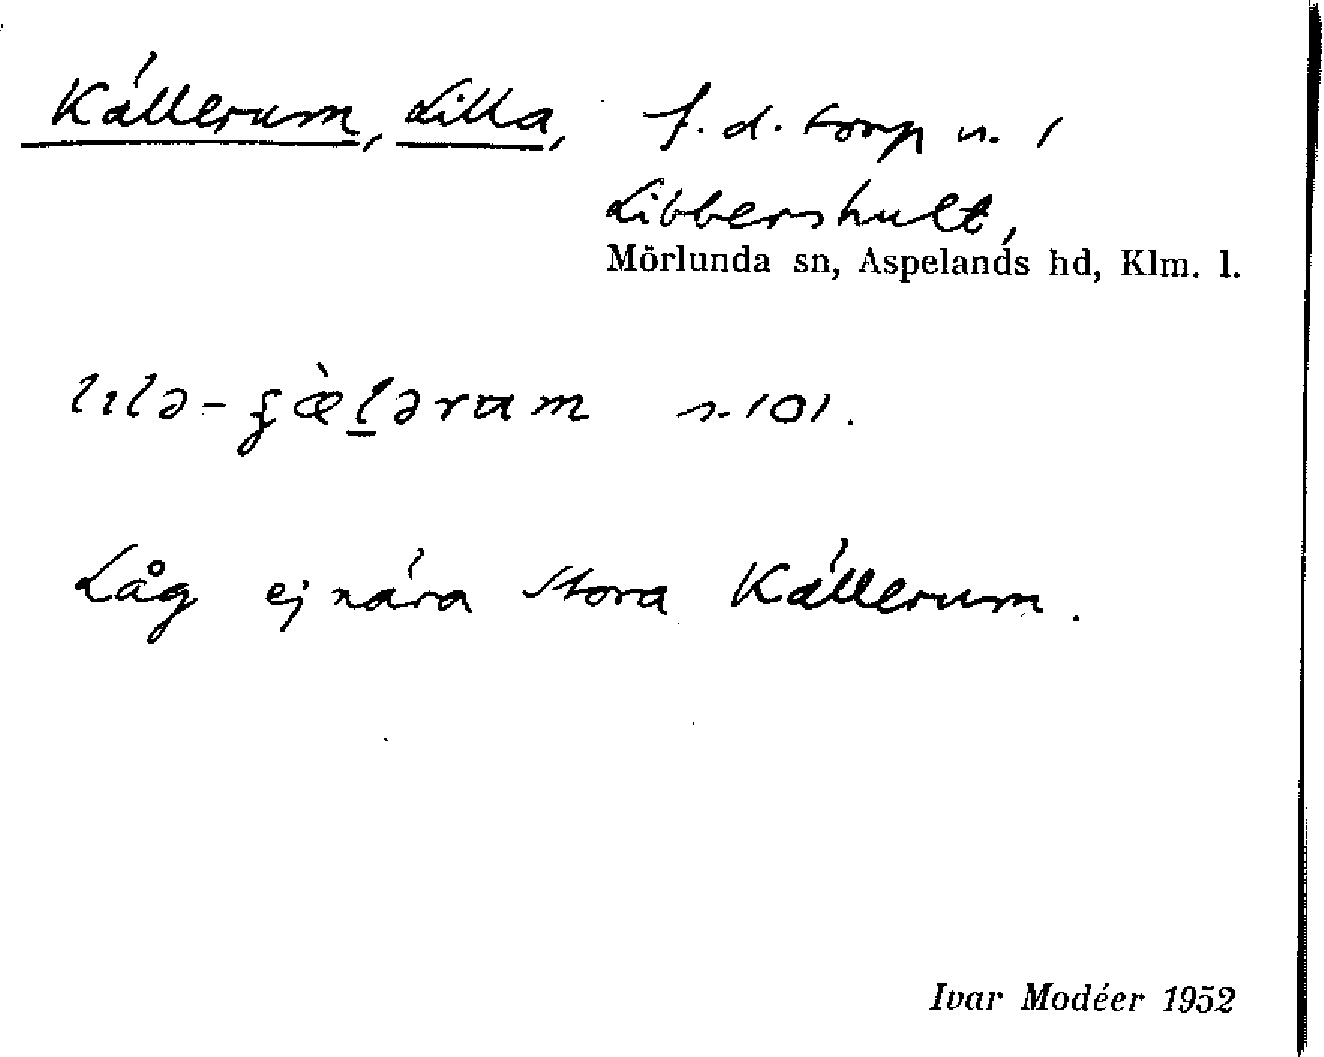 Källerum, Lilla, f.d. torp u. 1
Libbershult,
Mörlunda sn, Aspelands hd, Klm. l.
s. 101.
Låg ej nära Stora Källerum.
Ivar Modéer 1952